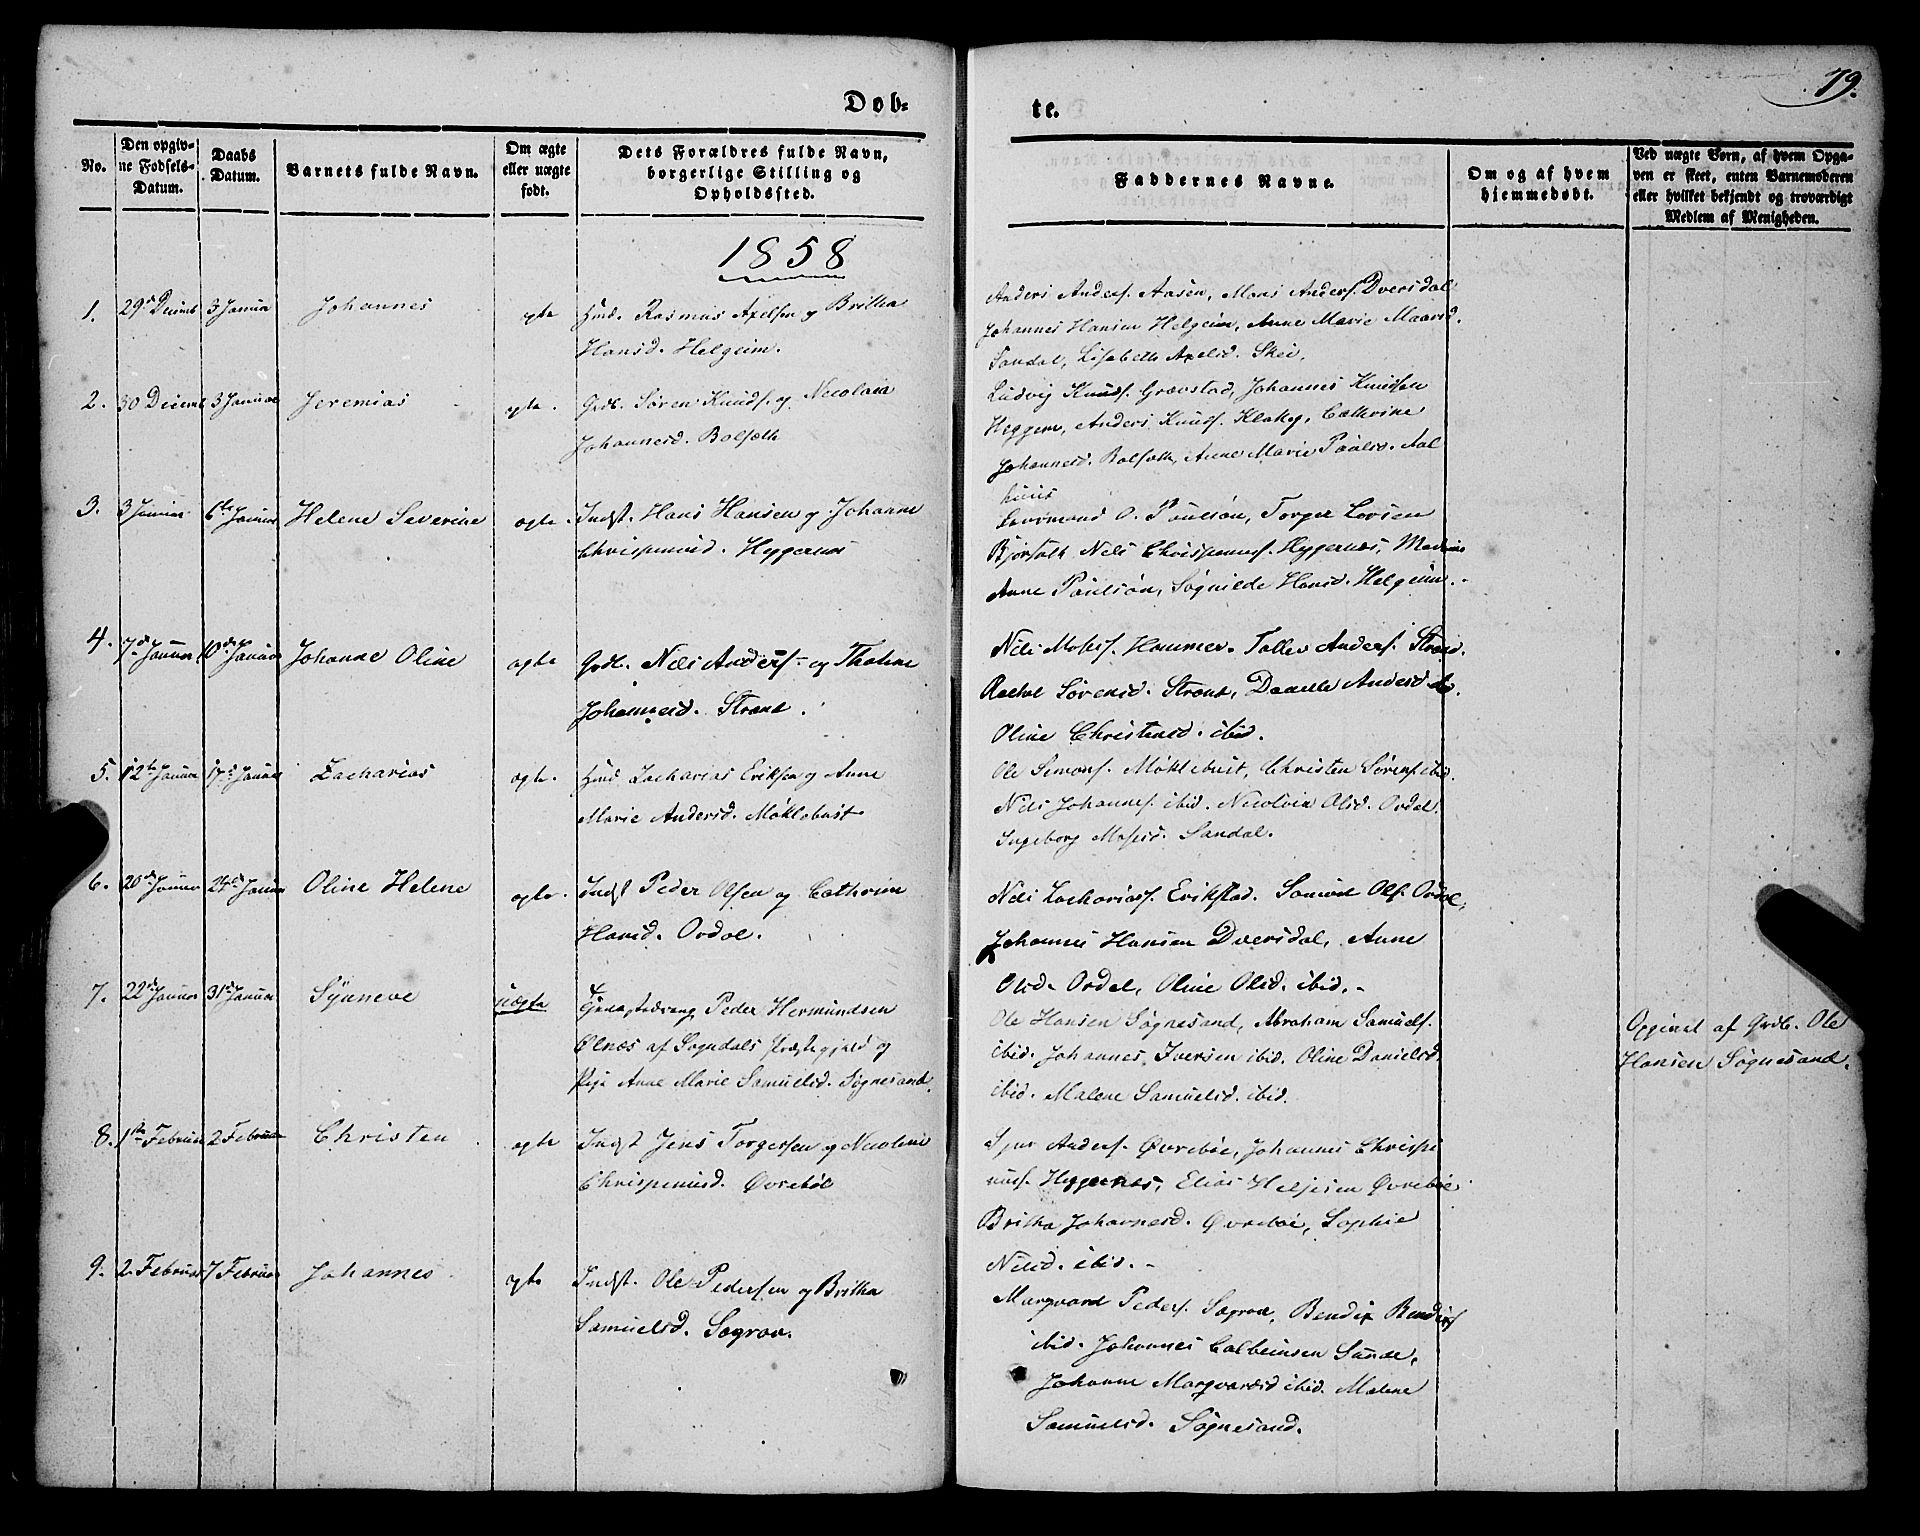 79.
Døb-
te.
No.
Den opgiv-
ne Fødsels-
Datum.
Daabs
Datum.
Barnets fulde Navn.
Om ægte
eller uægte
født.
Dets Forældres fulde Navn,
borgerlige Stilling og
Opholdssted.
Faddernes Navne.
Om og af hvem
hjemmedøbt.
Ved uægte Børn, af hvem Opga-
ven er skeet, enten Barnemoderen
eller hvilket bekjendt og troværdigt
Medlem af Menigheden.
1858
1. 29de Decemb 3 Januar Johannes ægte Huusm. Rasmus Axelsen og Britha
Hansd. Helgeim.
Anders Anders. Aasen, Mons Anders. Dversdal
Johannes Hansen Helgeim, Anne Marie
Sandal, Lisabeth Axelsd. Skei.
2. 30 Decemb 3 Januar Jeremias ægte. Grdb. Søren Knuds. og Nicolaia
Johannesd. Bolsæth
Ludvig Knuds. Gravstad, Johannes Knudsen
Heggem, Anders Knuds. Klakeg, Cathrine
Johannesd. Bolsæth, Anne Marie Paulsd. Aal
huus
3. 3 Januar 6te Januar Helene Severine ægte. Indst. Hans Hansen og Johanne
Chrispinusd. Heggenæs
O. Paulson, Torger Larsen
Nils Chrispinuss. Heggenæs, Madame
Anne Paulson, Søgnilde Hansd. Helgeim.
4. 7de Januar 10de Januar Johanne Oline ægte Grdb. Nils Anders. og Thaline
Johannesd. Strand.
Nils Moses. Hammer. Tollev Anders. Strand.
Rachel Sørensd. Strand, Danelle Andersd. do.
Oline Christensd. ibid.
5. 12te Januar 17de Januar Zacharias ægte. Huusm Zacharias Eriksen og Anne
Marie Andersd. Møklebust
Ole Simons. Møklebust, Christen Sørens. ibid.
Nils Johannes. ibid. Nicolvia Olsd. Ordal.
Ingeborg Mosesd. Sandal.
6. 20de Januar 24de Januar Oline Helene ægte. Indst Peder Olsen og Cathrine
Hansd. Ordal.
Nils Zacharias. Erikstad. Samuel Ols. Ordal,
Johannes Hansen Dversdal, Anne
Olsd. Ordal, Oline Olsd. ibid.
7. 22de Januar 31de Januar Synneve uægte Peder Hermundsen
Ølnæs af Sogndals Præstegjeld og
Pige Anne Marie Samuelsd. Søgnesand.
Ole Hansen Søgnesand, Abraham Samuels.
ibid. Johannes Iversen ibid. Oline Danielsd.
ibid. Malene Samuelsd. ibid.
Opgivet af Grdb. Ole
Hansen Søgnesand.
8. 1ste Februar 2 Februar Christen ægte Indst Jens Torgersen og Nicoline
Chrispinusd. Øvrebøe
Sjur Anders. Øvrebøe, Johannes Chrispi
nus. Heggenæs, Elias Heljesen Øvrebøe
Britha Johannesd. Øvrebøe, Sophie
Nilsd. ibid.
9. 2 Februar 7 Februar Johannes ægte Indst. Ole Pedersen og Britha
Samuelsd. Søgrov.
Marqvard Peders. Søgrov, Bendix Bendixs
ibid. Johannes Colbeinsen Sande,
Johanne Marqvardsd ibid. Malene
Samuelsd. Søgnesand.